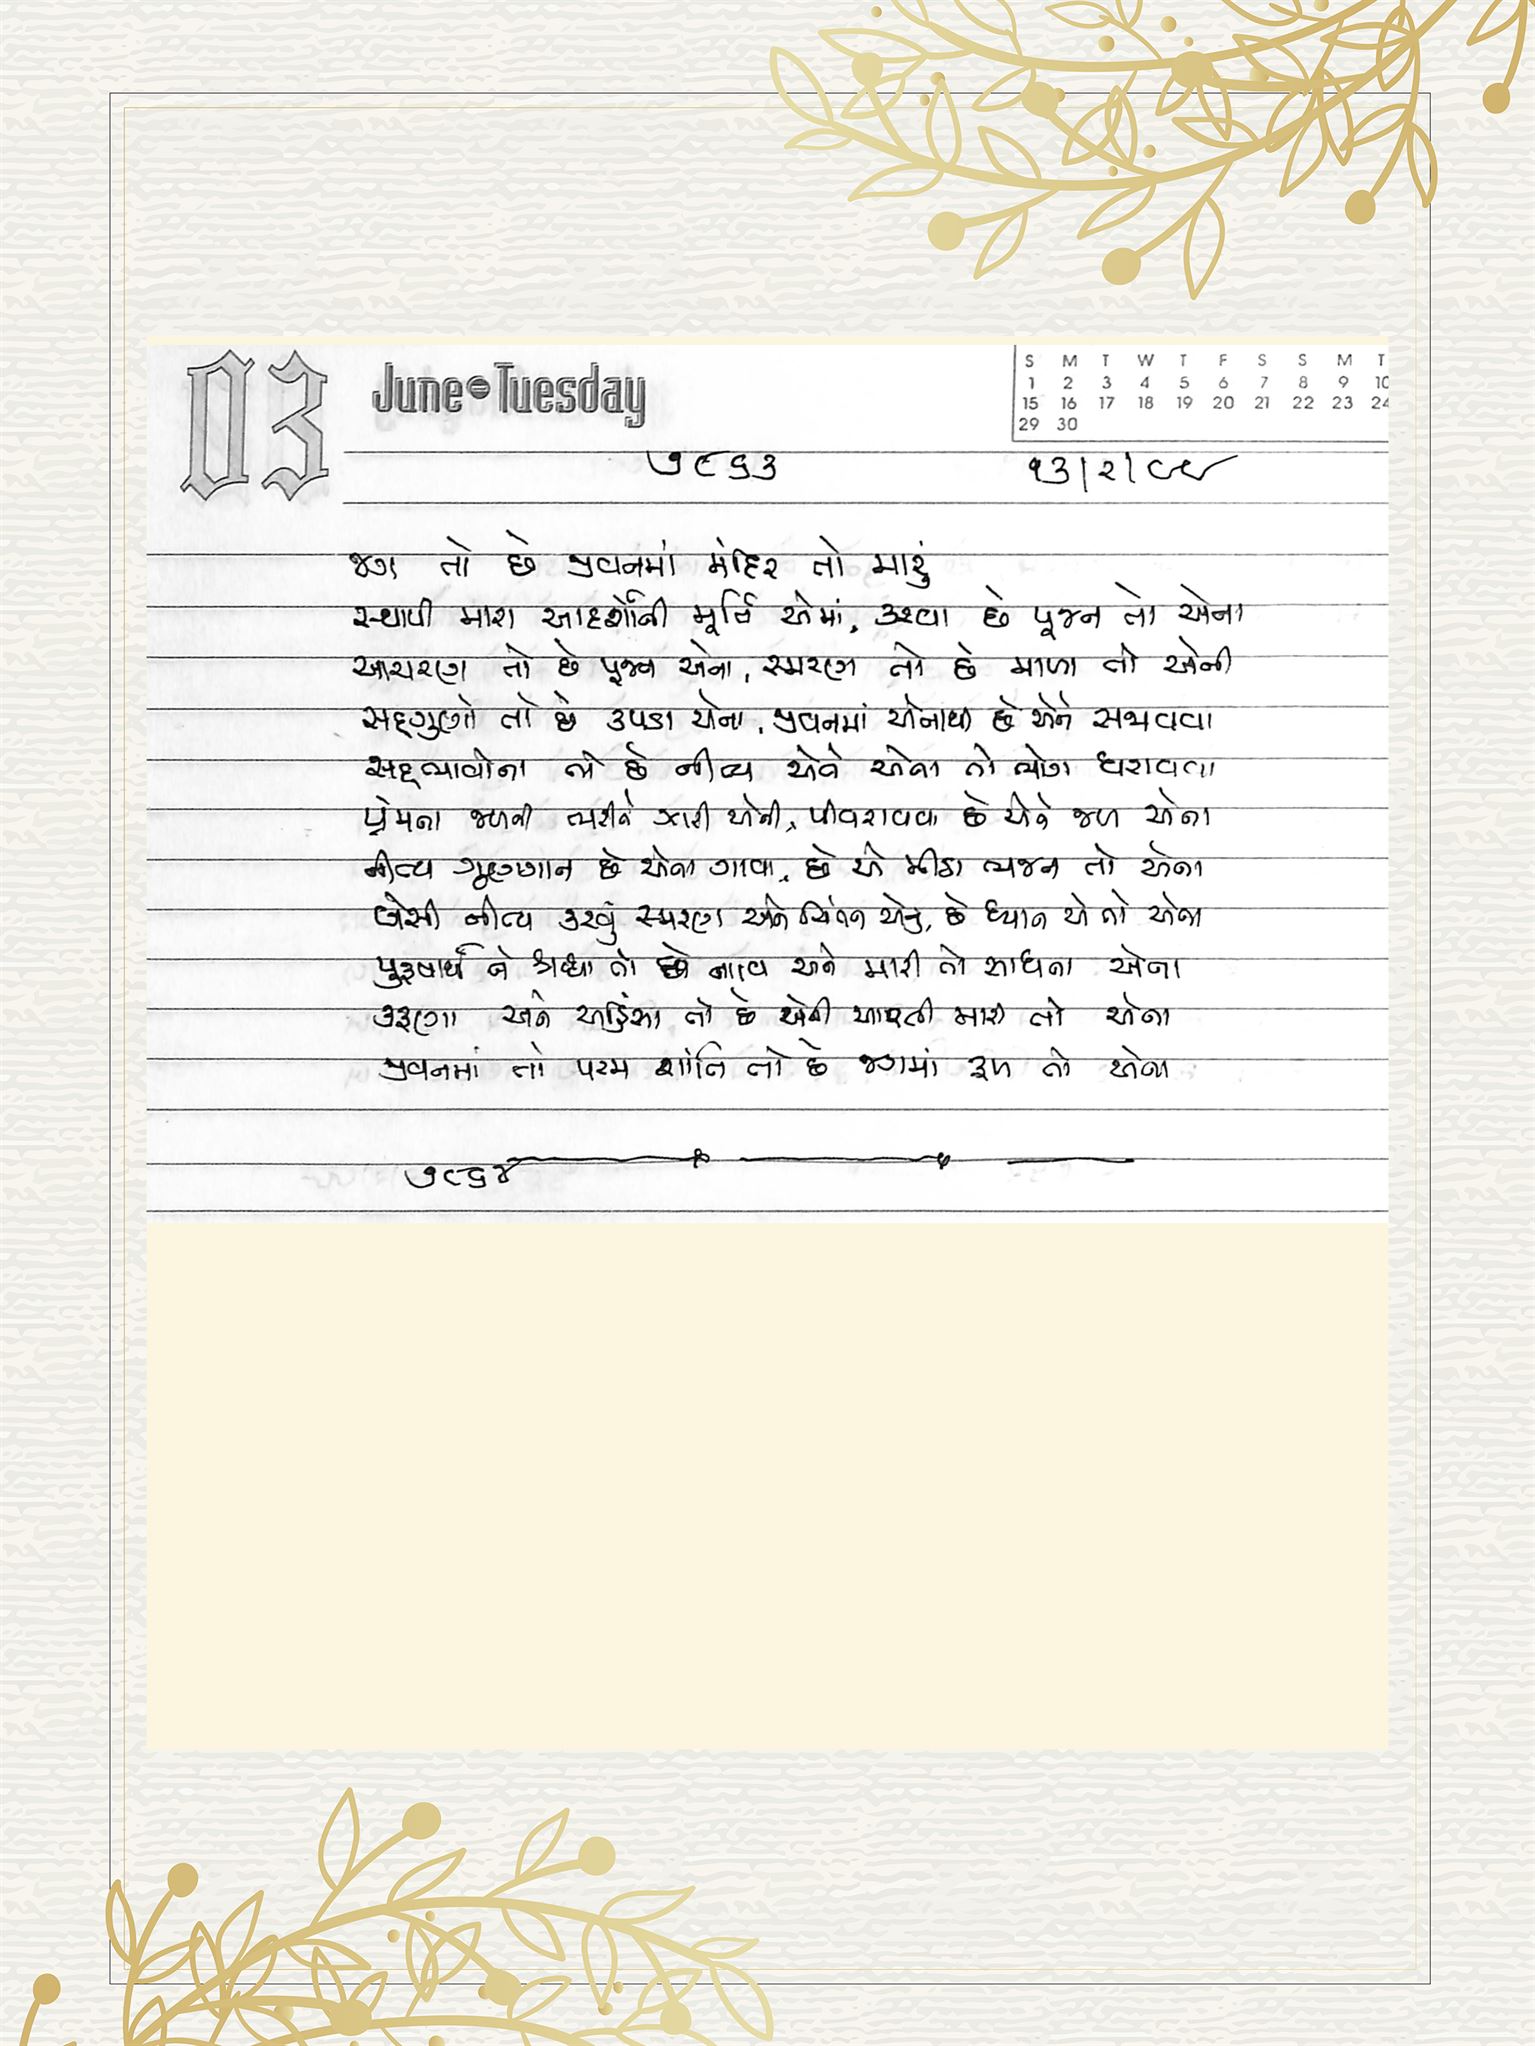 03 June Tuesday
S M T W T F S S M T
1 2 3 4 5 6 7 8 9 10
15 16 17 18 19 20 21 22 23 24
29 30
૭૯૬૩ ૧૩/૨/૯૯
જગ તો છે જીવનમાં મંદિર તો મારું
સ્થાપી મારા આદર્શોની મૂર્તિ એમાં, કરવા છે પૂજન તો એના
આચરણ તો છે પૂજન એના, સ્મરણ તો છે માળા તો એની
સદ્ગુણો તો છે કપડા એના, જીવનમાં એનાથી છે એને સજાવવા
સદ્ભાવોના તો છે નીત્ય એને એના તો ભોગ ધરાવવા
પ્રેમના જળની ભરીને ઝારી એની, પીવરાવવા છે એને જળ એના
નીત્ય ગૂણગાન છે એના ગાવા, છે એ મીઠા ભજન તો એના
બેસી નીત્ય કરવું સ્મરણ અને ચિંતન એનું, છે ધ્યાન એ તો એના
પુરૂષાર્થ ને શ્રધ્ધા તો છે અને મારી તો સાધના એના
કરૂણા અને અહિંસા તો છે એની આરતી મારી તો એના
જીવનમાં તો પરમ શાંતિ તો છે જગમાં ફળ તો એના
૭૯૬૪